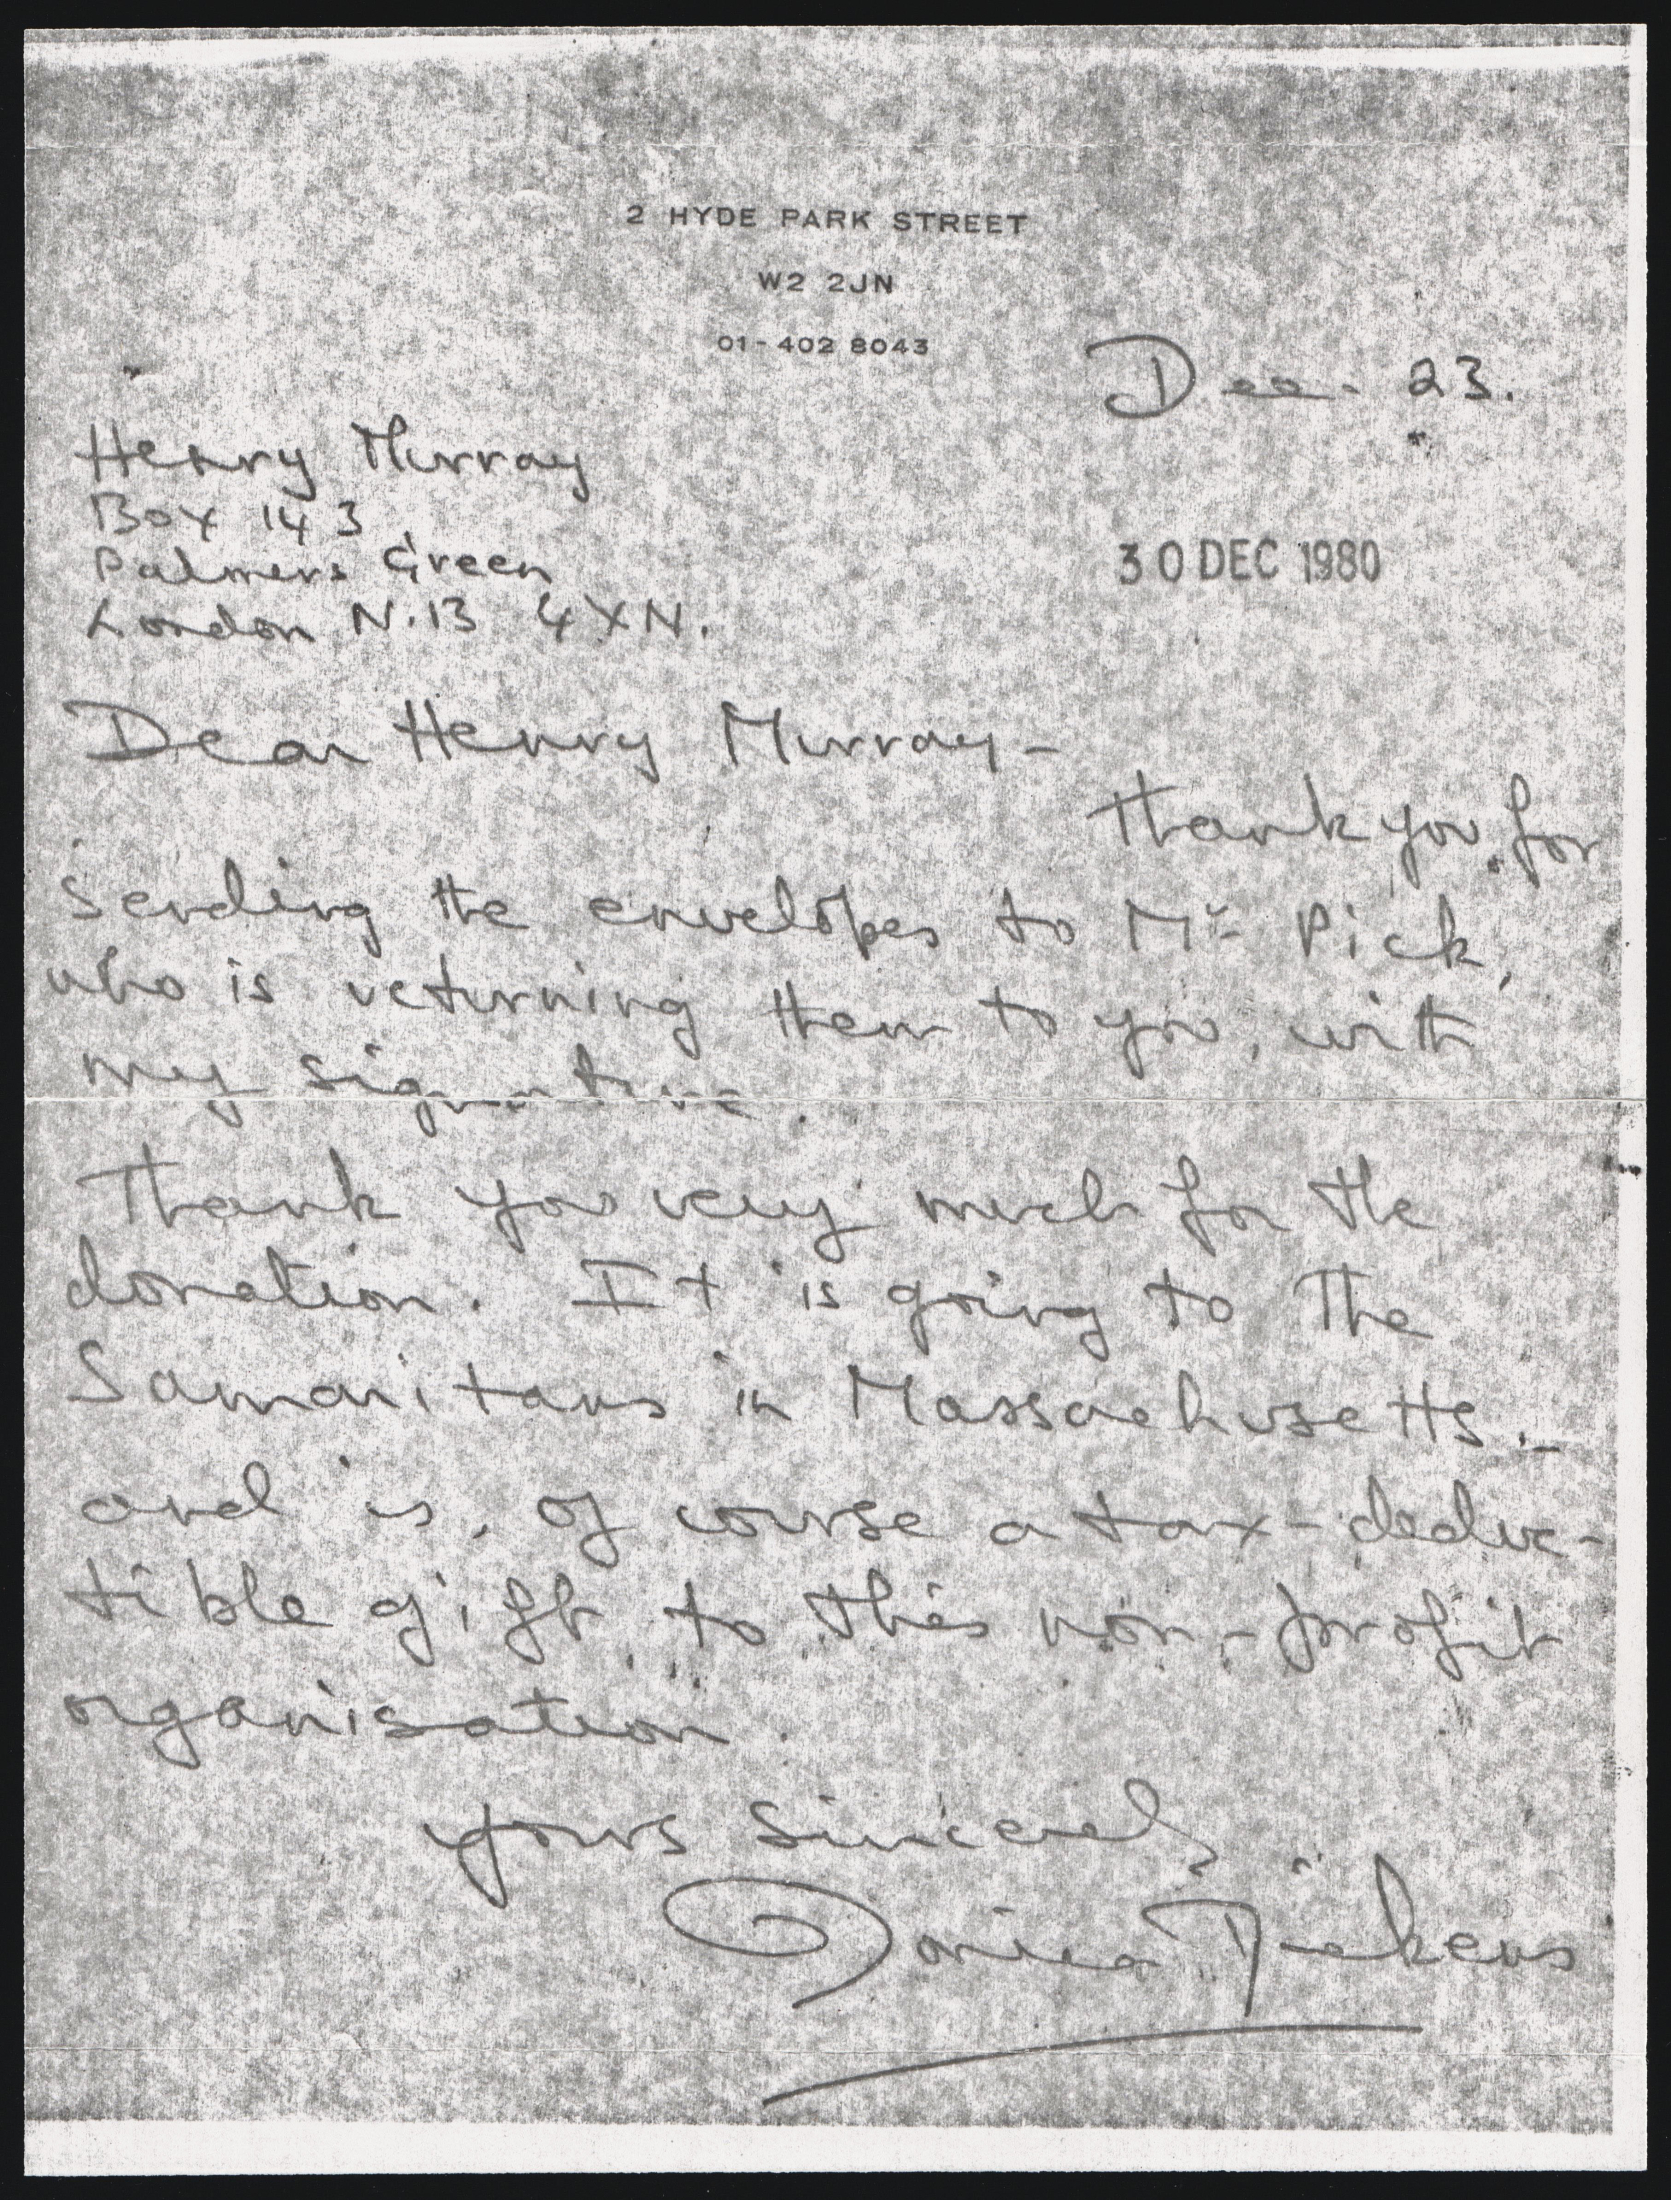 2 HYDE PARK STREET
W2 2JN
01-402 8043
Dec. 23.
Henry Murray
Box 143
Palmers Green
London N.13 4XN.
30 DEC 1980
Dear Henry Murray -
Thank you for
sending the envelopes to Mr Pick,
who is returning them to you, with
my signature.
Thank you very much for the
donation. It is going to The
Samaritans in Massachusetts. -
and is, of course a tax-deduc-
tible gift to this non-profit
organisation.
Yours Sincerely
Monica Dickens